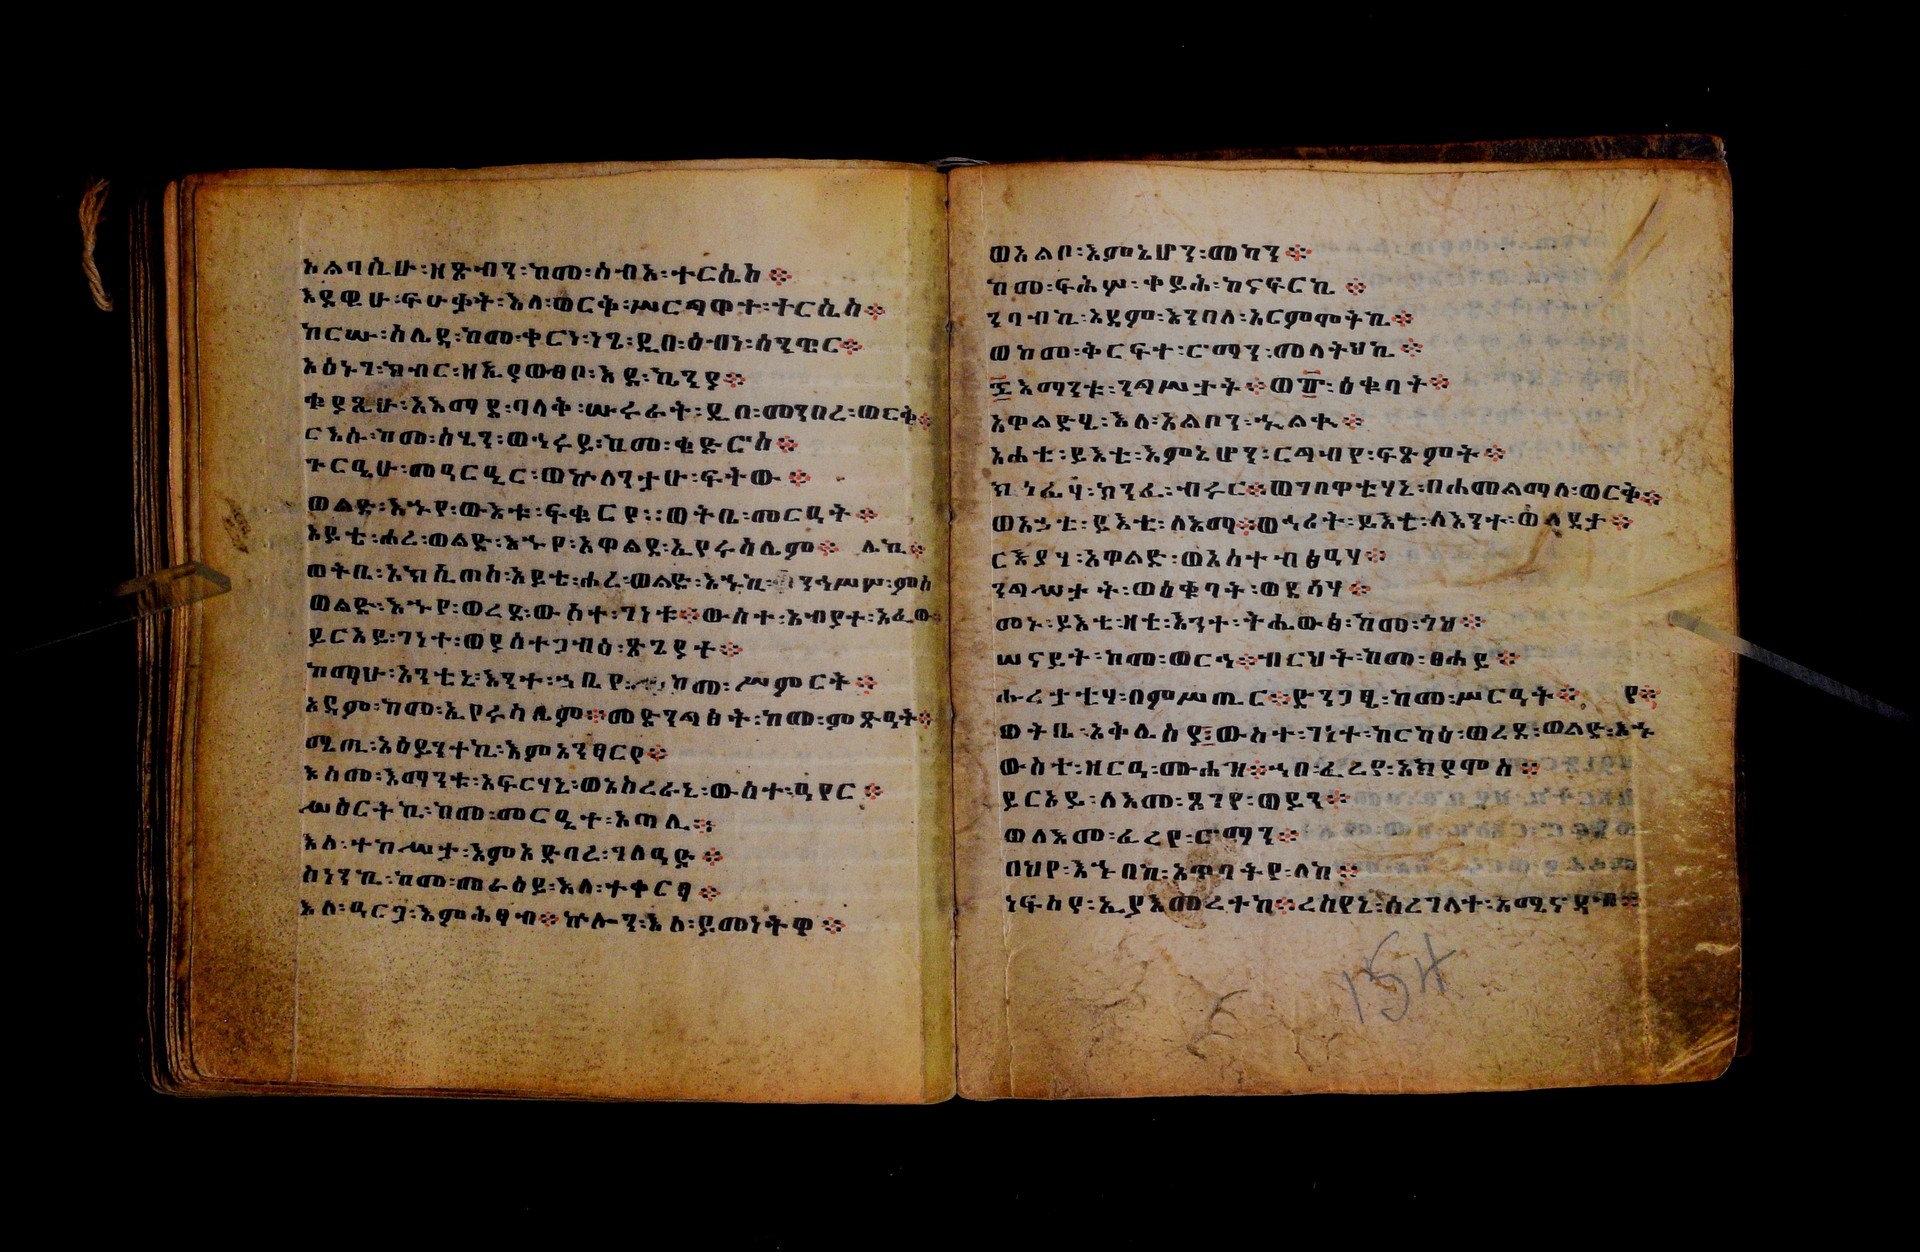 አልባሲሁ፡ዘጽብን፡ከመ፡ሰብእ፡ተርሴስ፨
እደዊሁ፡ፍሁቃት፡እለ፡ወርቅ፡ሥርጋዋተ፡ትርሲስ፨
ከርሡ፡ሰሌዳ፡ከመ፡ቀርነ፡ነጌ፡ዲበ፡ዕብነ፡ሰንፔር፨
እዕኑግ፡ክብር፡ዘኢያውፅቦ፡እደ፡ኪንያ፨
ቁያጺሁ፡አእማደ፡ባላቅ፡ሡሩራት፡ዲበ፡መንበረ፡ወርቅ፨
ርእሱ፡ከመ፡ስሂን፡ወኅሩይ፡ከመ፡ቄድሮስ፨
ጉርዔሁ፡መዓርዒር፡ወኵለንታሁ፡ፍትው፨
ወልድ፡እኁየ፡ውእቱ፡ፍቁርየ፡፡ወትቤ፡መርዓት፨
አይቴ፡ሐረ፡ወልድ፡እኁየ፡አዋልደ፡ኢየሩሳሌም፨ ሌኪ፨
ወትቤ፡አክሊጠስ፡አይቴ፡ሐረ፡ወልድ፡እኁኪ፡ ንኅሥሥ፡ምስ
ወልድ፡እኁየ፡ወረደ፡ውስተ፡ገነቱ፨ውስተ፡አብያተ፡አፈው፨
ይርአይ፡ገነተ፡ወያስተጋብዕ፡ጽጌያተ፨
ከማሁ፡አንቲኒ፡እንተ፡ኀቤየ፡ ከመ፡ሥምርት፨
አዳም፡ከመ፡ኢየሩሳሌም፨መድንጋፅት፡ከመ፡ምጽዓት፨
ሚጢ፡አዕይንተኪ፡እምአንፃርየ፨
እስመ፡እማንቱ፡አፍርሃኒ፡ወአስረራኒ፡ውስተ፡ዓየር፨
ሥዕርትኪ፡ከመ፡መርዔተ፡አጣሊ፨
እለ፡ተከሥታ፡እምአድባረ፡ገለዓድ፨
ስነንኪ፡ከመ፡መራዕይ፡እለ፡ተቀርፃ፨
እለ፡ዓርጋ፡እምሕፃብ፨ኵሎን፡እለ፡ይመነትዋ፨
ወአልቦ፡እምኔሆን፡መካን፨
ከመ፡ፍሕሦ፡ቀይሕ፡ከናፍርኪ፨
ንባብኪ፡አዳም፡እንበለ፡አርምሞትኪ፨
ወከመ፡ቅርፍተ፡ሮማን፡መላትህኪ፨
፷እማንቱ፡ንግሥታት፨ወ፹፡ዕቁባት፨
አዋልድሂ፡እለ፡አልቦን፡ኍልቈ፨
አሐቲ፡ይእቲ፡እምኔሆን፡ርግብየ፡ፍጽምት፨
ክነፊሃ፡ክንፈ፡ብሩር፨ወገበዋቲሃኒ፡በሐመልማለ፡ወርቅ፨
ወአኃቲ፡ይእቲ፡ለእማ፨ወኅሪት፡ይእቲ፡ለእንተ፡ወለደታ፨
ርእያሃ፡አዋልድ፡ወአስተብፅዓሃ፨
ንግሥታት፡ወዕቁባት፡ወደሳሃ፨
መኑ፡ይእቲ፡ዛቲ፡እንተ፡ትሔውፅ፡ከመ፡ጎህ፨
ሠናይት፡ከመ፡ወርኅ፨ብርህት፡ከመ፡ፀሐይ፨
ሑረታቲሃ፡በምሥጢር፨ድንጋፂ፡ከመ፡ሥርዓት፨ የ፨
ወትቤ፡አቅሌስያ፤ውስተ፡ገነተ፡ከርካዕ፡ወረደ፡ወልድ፡እኁ
ውስተ፡ዘርዓ፡ሙሐዝ፨ኀበ፡ፈረየ፡አክያሞስ፨
ይርአይ፡ለእመ፡ጸገየ፡ወይን፨
ወለእመ፡ፈረየ፡ሮማን፨
በህየ፡እኁበከ፡አጥባትየ፡ለከ፨
ነፍስየ፡ኢያእመረተከ፨ረሰየኒ፡ሰረገላተ፡አሚናዳብ፨
154